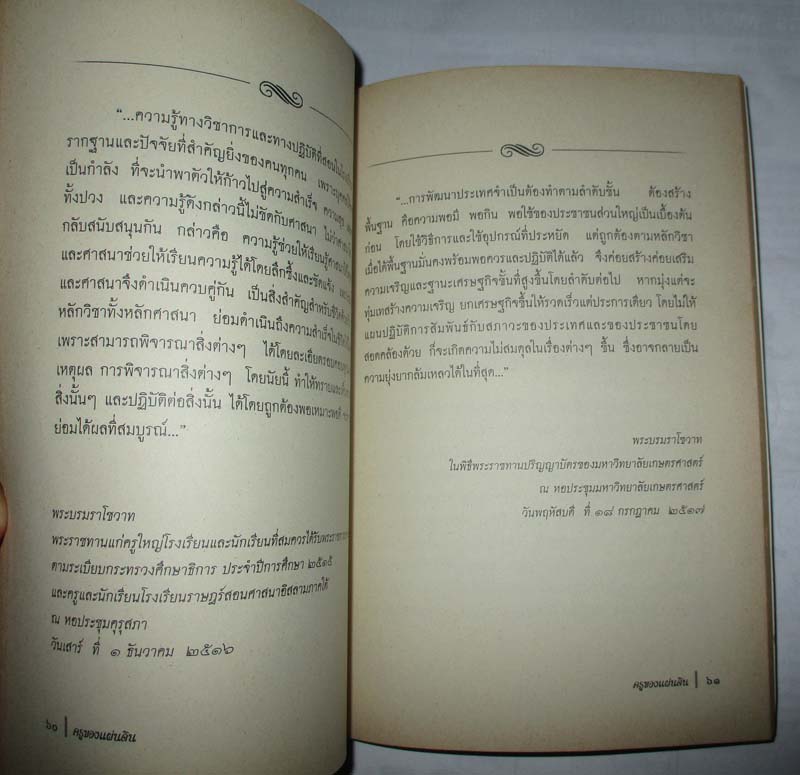 “...ความรู้ทางวิชาการและทางปฏิบัติที่สอนใน
รากฐานและปัจจัยที่สำคัญยิ่งของคนทุกคน เพราะ
เป็นกำลัง ที่จะนำพาตัวให้ก้าวไปสู่ความสำเร็จ ความสุข
ทั้งปวง และความรู้ดังกล่าวนี้ไม่ขัดกับศาสนา ไม่ว่าศาสนา
กลับสนับสนุนกัน กล่าวคือ ความรู้ช่วยให้เรียนรู้ศาสนาได้
และศาสนาช่วยให้เรียนความรู้ได้โดยลึกซึ้งและชัดแจ้ง
และศาสนาจึงดำเนินควบคู่กัน เป็นสิ่งสำคัญสำหรับชีวิต
หลักวิชาทั้งหลักศาสนา ย่อมดำเนินถึงความสำเร็จในชีวิต
เพราะสามารถพิจารณาสิ่งต่างๆ ได้โดยละเอียดรอบคอบ
เหตุผล การพิจารณาสิ่งต่างๆ โดยนัยนี้ ทำให้ทราบ
สิ่งนั้นๆ และปฏิบัติต่อสิ่งนั้น ได้โดยถูกต้องพอเหมาะพอดี
ย่อมได้ผลที่สมบูรณ์...”
พระบรมราโชวาท
พระราชทานแก่ครูใหญ่โรงเรียนและนักเรียนที่สมควรได้รับ
ตามระเบียบกระทรวงศึกษาธิการ ประจำปีการศึกษา ๒๕๑๕
และครูและนักเรียนโรงเรียนราษฎร์สอนศาสนาอิสลามภาคใต้
ณ หอประชุมคุรุสภา
วันเสาร์ ที่ ๑ ธันวาคม ๒๕๑๖
๖๐ | ครูของแผ่นดิน
“...การพัฒนาประเทศจำเป็นต้องทำตามลำดับขั้น ต้องสร้าง
พื้นฐาน คือความพอมี พอกิน พอใช้ของประชาชนส่วนใหญ่เป็นเบื้องต้น
ก่อน โดยใช้วิธีการและใช้อุปกรณ์ที่ประหยัด แต่ถูกต้องตามหลักวิชา
เมื่อได้พื้นฐานมั่นคงพร้อมพอควรและปฏิบัติได้แล้ว จึงค่อยสร้างค่อยเสริม
ความเจริญและฐานะเศรษฐกิจขั้นที่สูงขึ้นโดยลำดับต่อไป หากมุ่งแต่จะ
ทุ่มเทสร้างความเจริญ ยกเศรษฐกิจขึ้นให้รวดเร็วแต่ประการเดียว โดยไม่ให้
แผนปฏิบัติการสัมพันธ์กับสภาวะของประเทศและของประชาชนโดย
สอดคล้องด้วย ก็จะเกิดความไม่สมดุลในเรื่องต่างๆ ขึ้น ซึ่งอาจกลายเป็น
ความยุ่งยากล้มเหลวได้ในที่สุด...”
พระบรมราโชวาท
ในพิธีพระราชทานปริญญาบัตรของมหาวิทยาลัยเกษตรศาสตร์
ณ หอประชุมมหาวิทยาลัยเกษตรศาสตร์
วันพฤหัสบดี ที่ ๑๘ กรกฎาคม ๒๕๑๗
ครูของแผ่นดิน | ๖๑